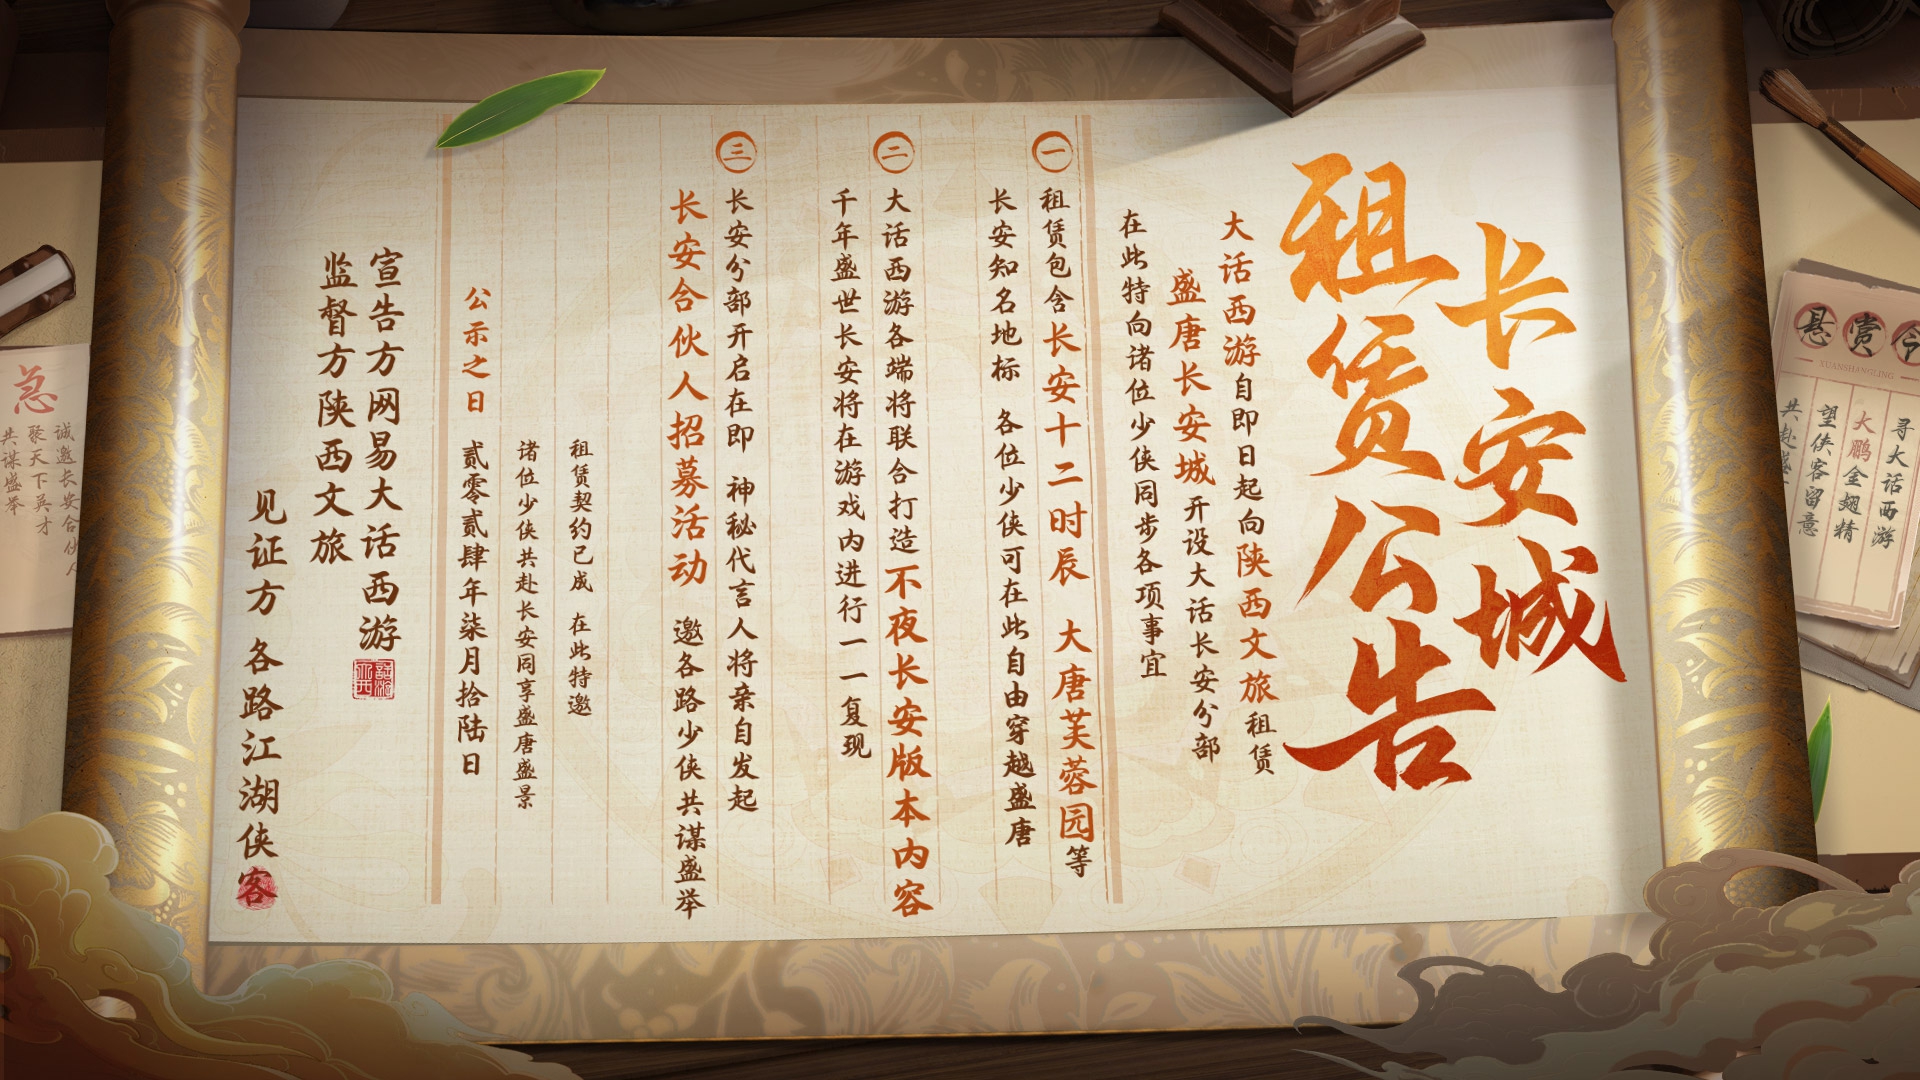 长安城
租赁公告
大话西游自即日起向陕西文旅租赁
盛唐长安城开设大话长安分部
在此特向诸位少侠同步各项事宜
一
租赁包含长安十二时辰 大唐芙蓉园等
长安知名地标 各位少侠可在此自由穿越盛唐
二
大话西游各端将联合打造不夜长安版本内容
千年盛世长安将在游戏内进行一一复现
三
长安分部开启在即 神秘代言人将亲自发起
长安合伙人招募活动 邀各路少侠共谋盛举
租赁契约已成 在此特邀
诸位少侠共赴长安同享盛唐盛景
公示之日 贰零贰肆年柒月拾陆日
宣告方网易大话西游
监督方陕西文旅
见证方 各路江湖侠客
悬赏令
XUANSHANGLING
寻大话西游
大鹏金翅精
望侠客留意
共赴盛
急
诚邀长安合伙人
聚天下英才
共谋盛举